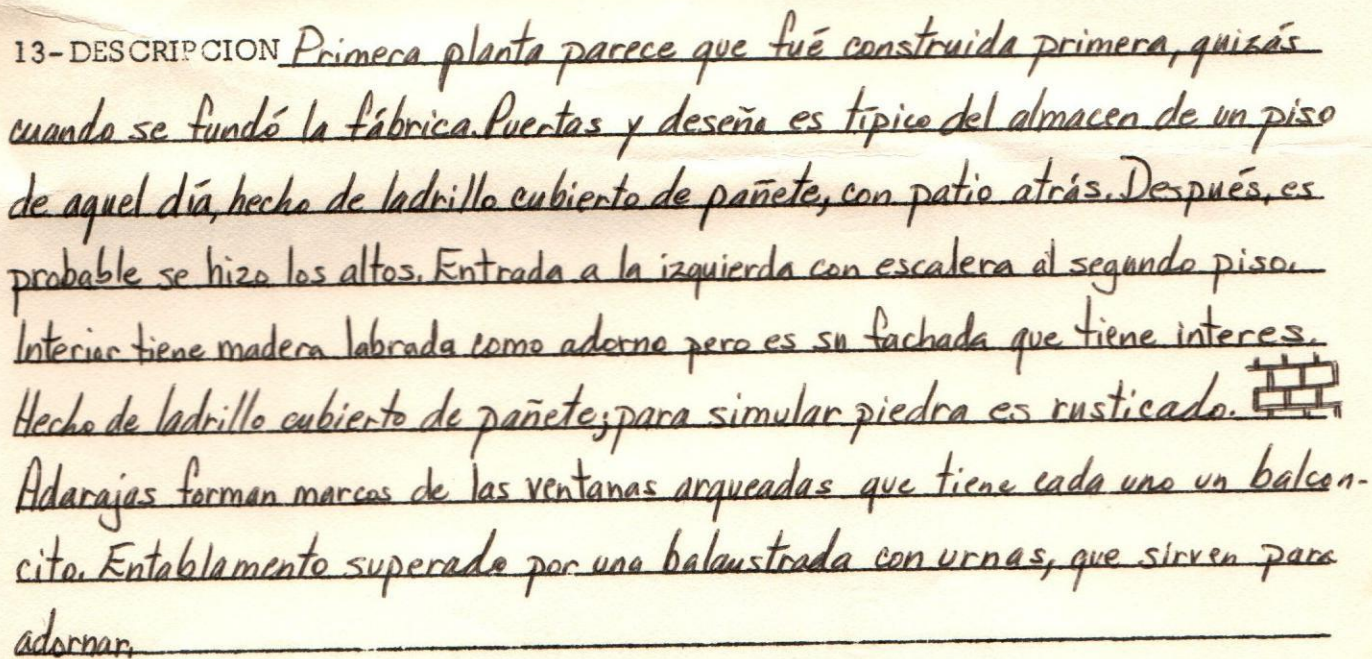 13-DESCRIPCION Primera planta parece que fué construida primera, quizás
cuando se fundó la fábrica. Puertas y deseño es típico del almacen de un piso
de aquel día, hecho de ladrillo cubierto de pañete, con patio atrás. Después, es
probable se hizo los altos. Entrada a la izquierda con escalera al segundo piso.
Interior tiene madera labrada como adorno pero es su fachada que tiene interes.
Hecho de ladrillo cubierto de pañete; para simular piedra es rusticado.
Adarajas forman marcos de las ventanas arqueadas que tiene cada uno un balcon-
cito. Entablamento superado por una balaustrada con urnas, que sirven para
adornar.